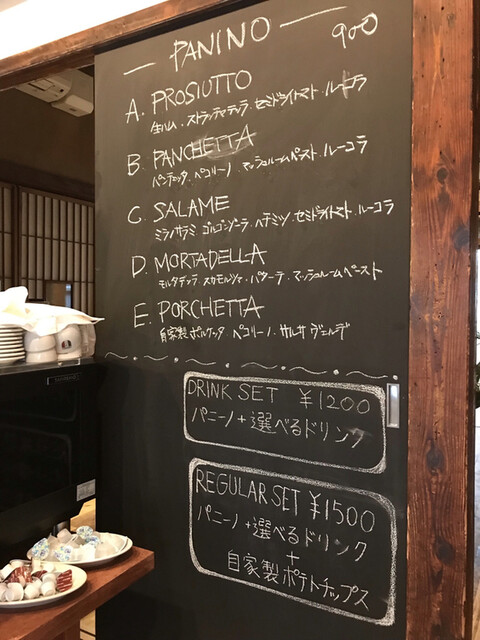 PANINO
900
A. PROSIUTTO
生ハム . ストラッチャテッラ . セミドライトマト . ルーコラ
B. PANCHETTA
パンチェッタ . ペコリーノ . マッシュルームペースト . ルーコラ
C. SALAME
ミラノサラミ . ゴルゴンゾーラ . ハチミツ . セミドライトマト . ルーコラ
D. MORTADELLA
モルタデッラ . スカモルツァ . パターテ . マッシュルームペースト
E. PORCHETTA
自家製ポルケッタ . ペコリーノ . サルサ ヴェルデ
DRINK SET ¥1200
パニーノ+選べるドリンク
REGULAR SET ¥1500
パニーノ+選べるドリンク
+
自家製ポテトチップス